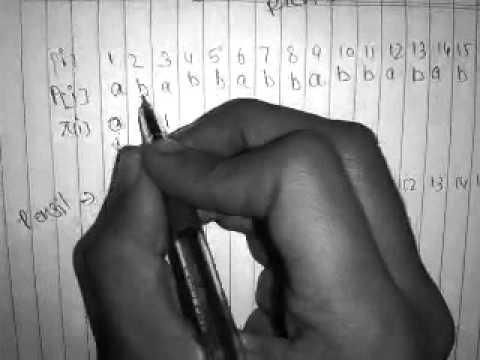 [i] 1 2 3 4 5 6 7 8 9 10 11 12 13 14 15
P[i] a b a b b a b b a b b a b a b
π[i] a 1
12 13 14